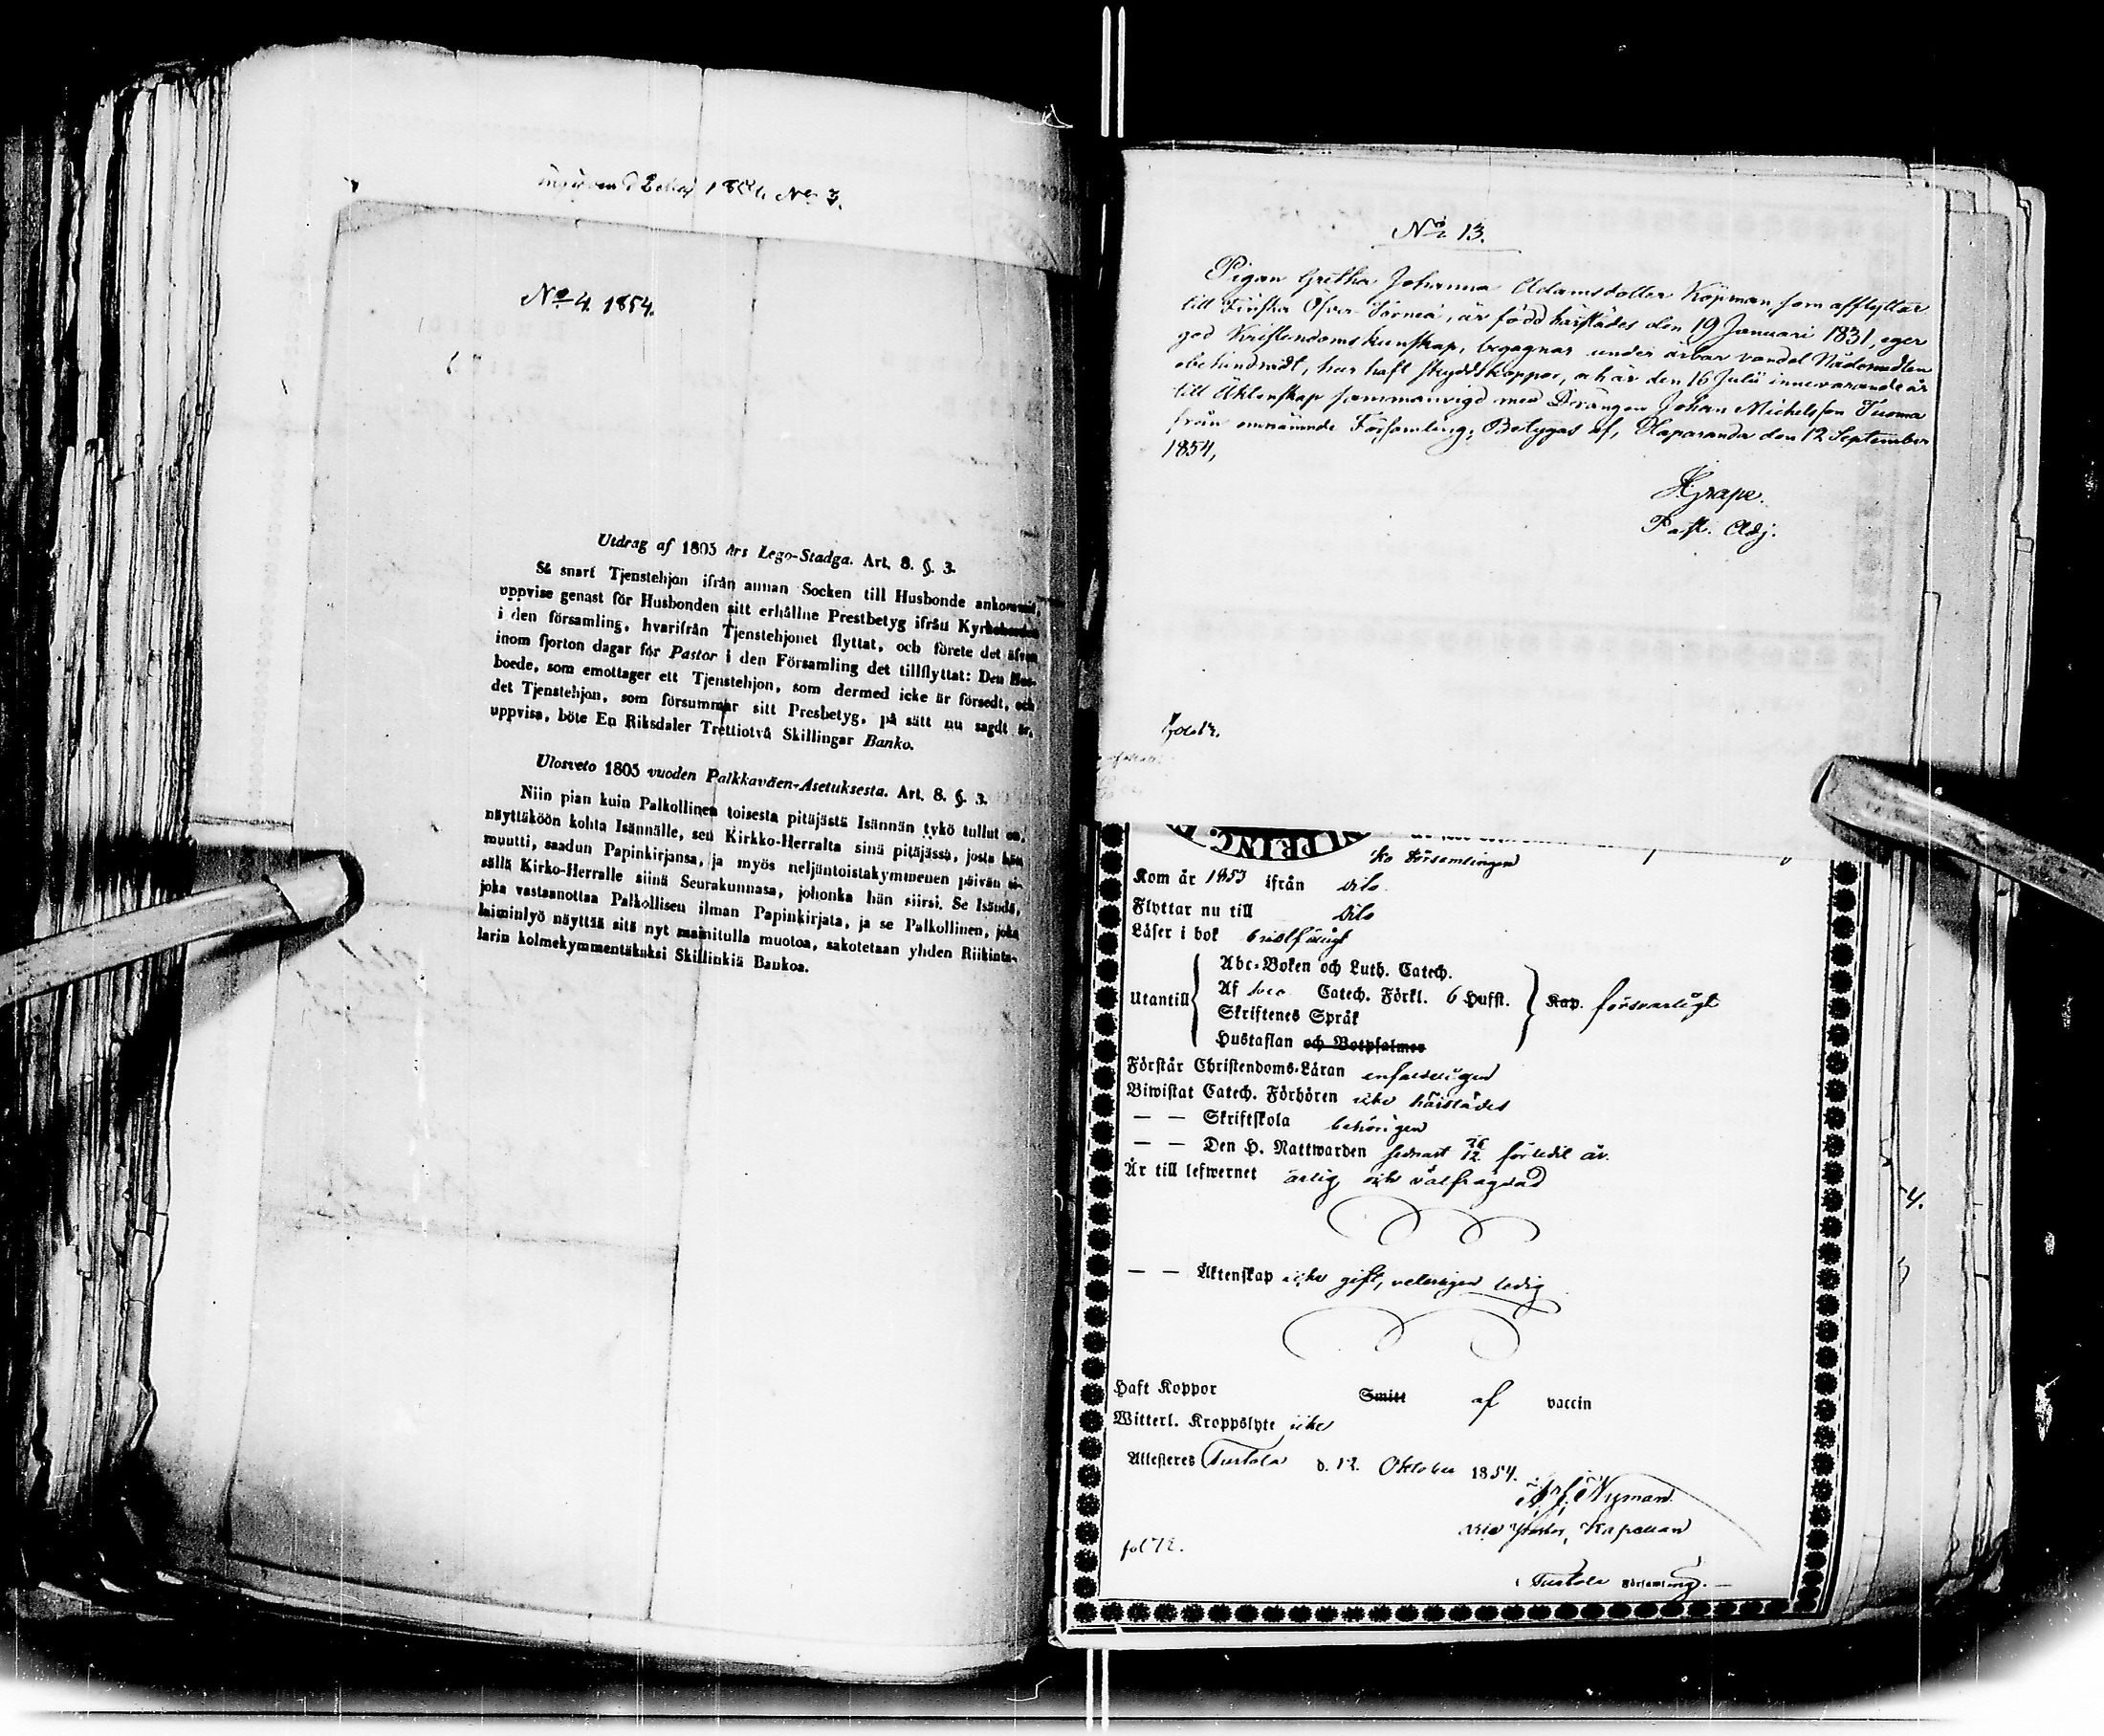 No 3.
No 4. 1854.
Utdrag af 1805 års Lego-Stadga. Art. 8. §. 3.
Så snart Tjenstehjon ifrån annan Socken till Husbonde ankommit,
uppvise genast för Husbonden sitt erhållne Prestbetyg ifrån
i den församling, hvarifrån Tjenstehjonet flyttat, och förete det äfven
inom fjorton dagar för Pastor i den Församling det tillflyttat: Den Hus-
boede, som emottager ett Tjenstehjon, som dermed icke är försedt, och
det Tjenstehjon, som försummar sitt Presbetyg, på sätt nu sagdt är,
uppvisa, böte En Riksdaler Trettiotvå Skillingar Banko.
Ulosveto 1805 vuoden Palkkaväen-Asetuksesta. Art. 8. §. 3.
Niin pian kuin Palkollinen toisesta pitäjästä Isännän tykö tullut on,
näyttäköön kohta Isännälle, sen Kirkko-Herralta sinä pitäjässä, josta hän
muutti, saadun Papinkirjansa, ja myös neljäntoistakymmenen päivän si-
sällä Kirko-Herralle siinä Seurakunnasa, johonka hän siirsi. Se Isändä,
joka vastaanottaa Palkollisen ilman Papinkirjata, ja se Palkollinen, joka
laiminlyö näyttää sitä nyt mainitulla muotoa, sakotetaan yhden Riikinta-
larin kolmekymmentäkaksi Skillinkiä Bankoa.
No 13.
Pigan Gretha Johanna Adamsdotter Köpman, som afflyttar
till Finska Öfver-Torneå, är född härstädes den 19 Januari 1831, eger
god Kristendoms kunskap, begagnar under ärbar vandel Nådemedlen
obehindradt, har haft skyddskoppor, och är den 16 Julii innevarande år
till Äktenskap sammanvigd med Drängen Johan Michelsson Tuoma
från omnämnde Församling; Betygas af, Haparanda den 12 September
1854,
Grape.
Past. Adj.
Församlingen
Kom år 1853 ifrån dito
Flyttar nu till dito
Läser i bok
Abc-Boken och Luth. Catech.
Utantill Af Catech. Förkl. 6 Hufst. Kap. försvarligt
Skriftenes Språk
Hustaflan och Botpsalmer
Förstår Christendoms-Läran enfaldeligen
Biwistat Catech. Förhören icke härstädes
— — Skriftskola behörigen
— — Den H. Nattwarden senast 26/12 förledit år.
Är till lefwernet ärlig och välfrägdad
— — Äktenskap icke gift, veterligen ledig
Haft Koppor Smitt af vaccin
Witterl. Kroppslyte icke
Attesteres Turtola d. 12 Oktober 1854.
Nyman
Vice Pastor, Kapellan
fol 72.
i Turtola Församling.
4.